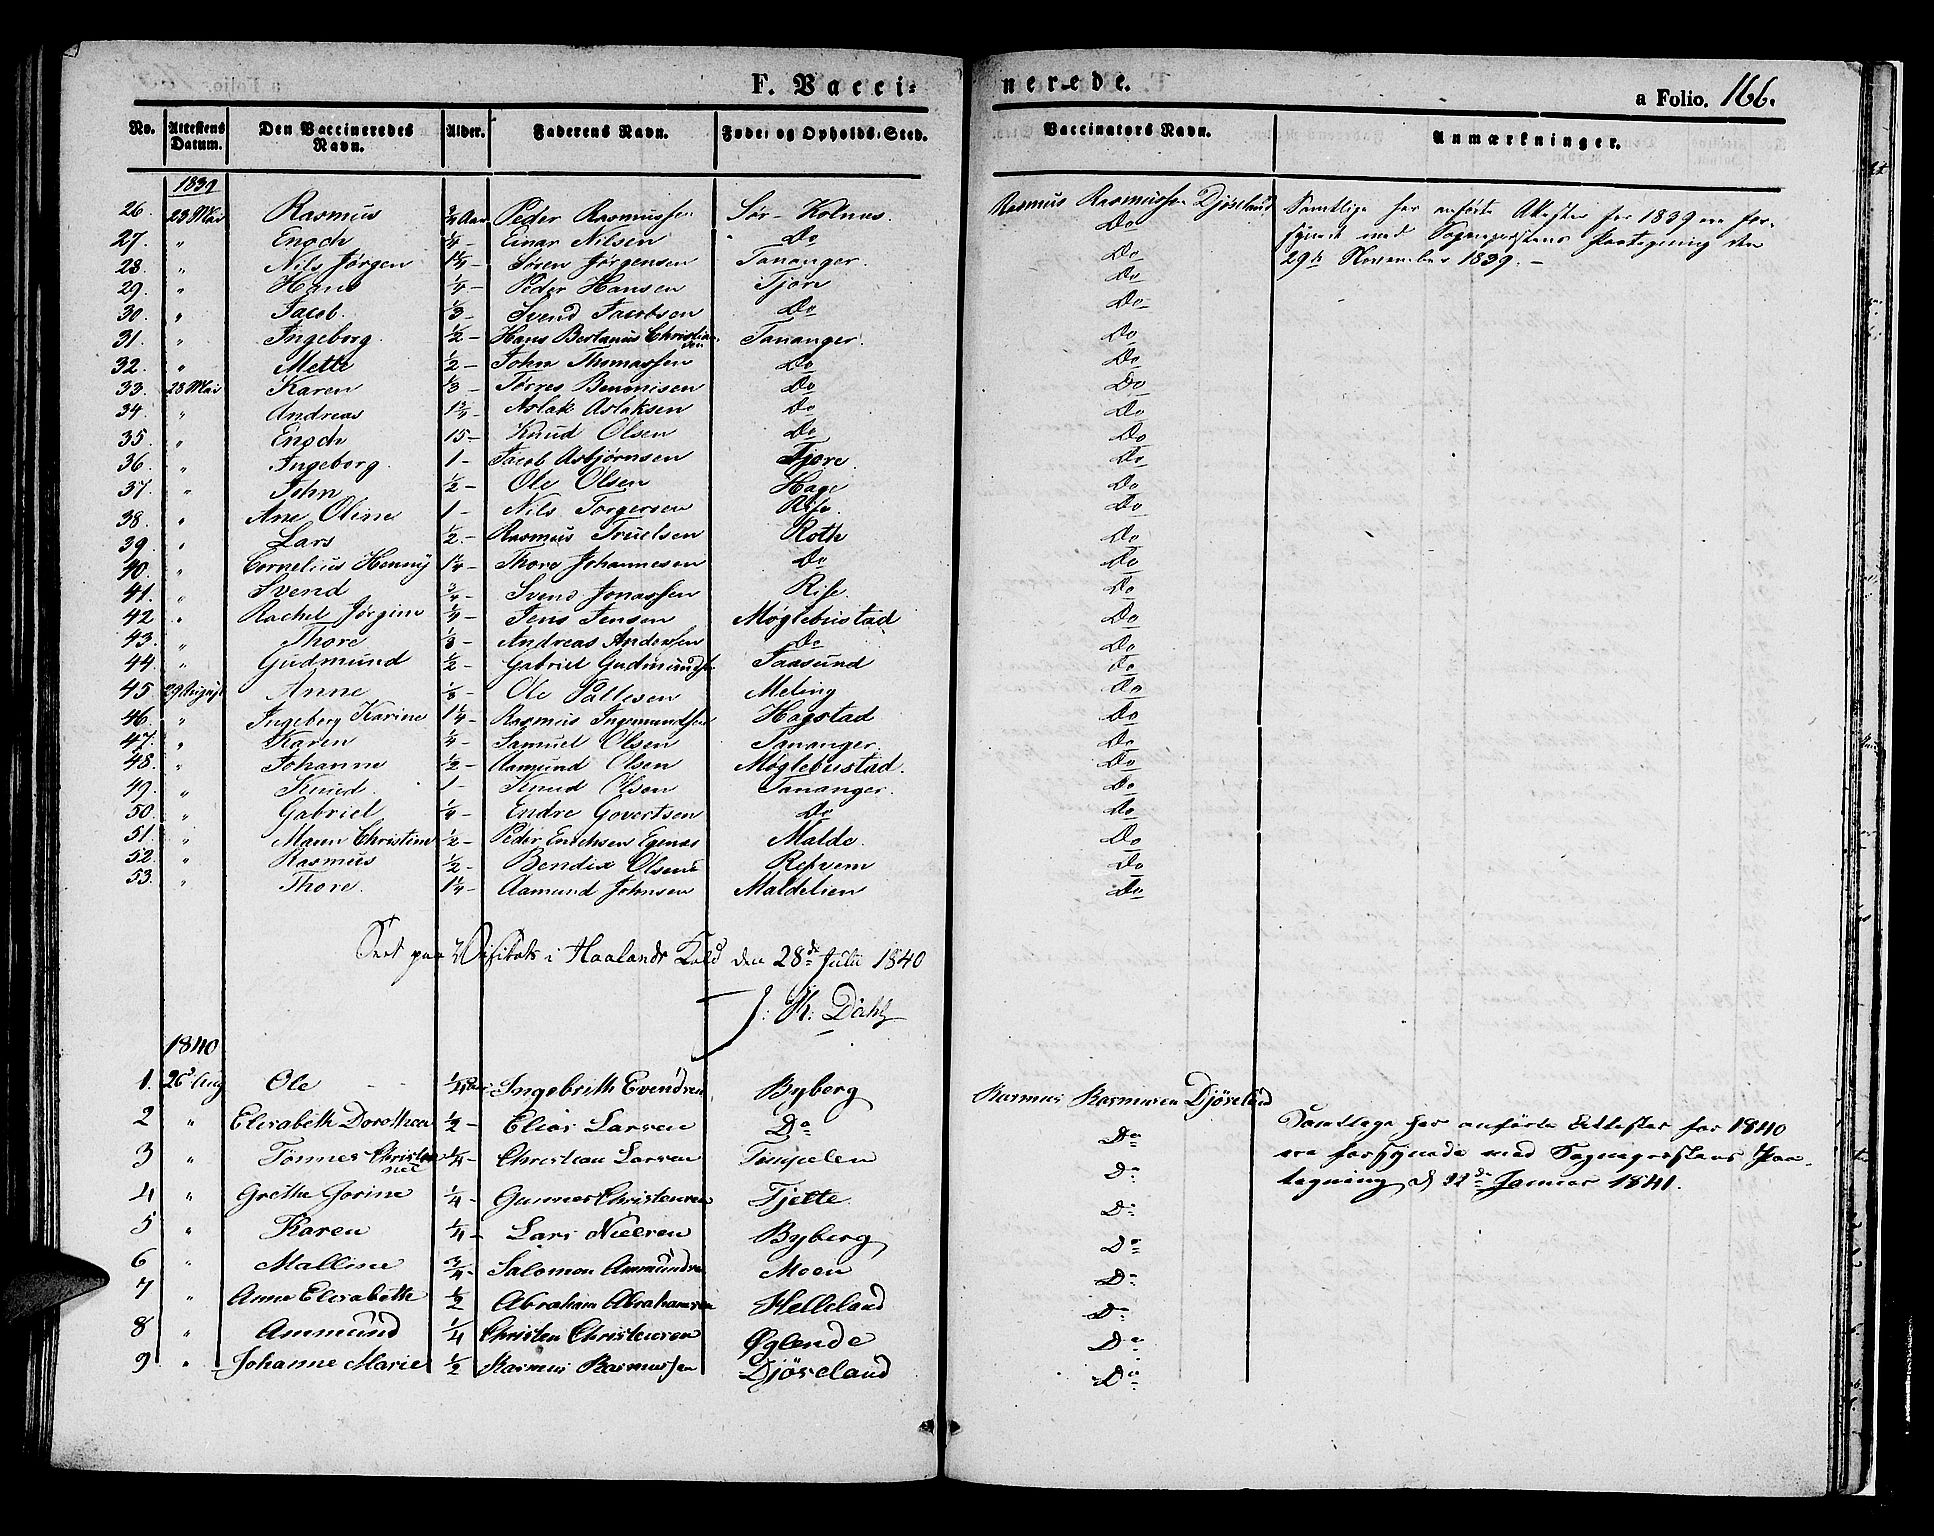 F. Vacci- nerede. a Folio. 166.
No. Attestens Datum. Den Vaccineredes Navn. Alder. Faderens Navn. Føde- og Opholds-Sted. Vaccinators Navn. Anmærkninger.
1839
26. 23 Mai Rasmus 3/4 Aar Peder Rasmussen Sør-Kolnes. Rasmus Rasmussen Djøseland Samtlige her anførte Attester for 1839 ere for-
27. " Enoch 1/4 - Einar Nilsen Do Do synede med Sogneprestens Paategning den
28. " Nils Jørgen 1 1/4 - Søren Jørgensen Tananger. Do 29de November 1839. -
29. " Hans 1/4 - Peder Hansen Tjore Do
30. " Jacob. 1/3 - Svend Jacobsen Do Do
31. " Ingeborg. 1/2 - Hans Bertanus Christiansen Tananger. Do
32. " Mette 1/2 - John Thomassen Do Do
33. 28 Mai Karen 1/3 - Tørres Benonisen Do Do
34. " Andreas 1 3/4 - Aslak Aslaksen Do Do
35. " Enoch 15 - Knud Olsen Do Do
36. " Ingeborg. 1 - Jacob Asbjørnsen Tjore. Do
37. " John 1/2 - Ole Olsen Hage Do
38. " Ane Oline 1 - Nils Torgersen Risa. Do
39. " Lars 1/2 - Rasmus Truelsen Roth Do
40. " Cornelius Henny 1 1/4 - Thore Johannesen Do Do
41. " Svend 3/4 - Svend Jonassen Rise. Do
42 " Rachel Jørgine 1/4 - Jens Jensen Møglebustad Do
43. " Thore 1/8 - Andreas Andersen Do Do
44. " Gudmund 1/2 - Gabriel Gudmunds. Jaasund Do
45 29 August Anne 1/8 - Ole Pallesen Meling Do
46. " Ingeborg Karine 1 1/4 - Rasmus Ingemundsen Hagstad Do
47. " Karen 1/4 - Samuel Olsen Tananger. Do
48. " Johanne 1/2 - Aamund Olsen Møglebustad. Do
49. " Knud. 1 - Knud Olsen Tananger. Do
50. " Gabriel 1/4 - Endre Govertsen Do Do
51. " Maren Christine 1/2 - Peder Enichsen Egenæs Malde. Do
52. " Rasmus 1/2 - Bendix Olsen Refvem Do
53. " Thore. 1 1/4 - Aamund Johnsen Maldelien Do
Seet paa Visitats i Haalands Kald den 28de Juli 1840
J: K: Dahl
1840
1. 26 Aug Ole 1/4 Aar Ingebrith Evendsen Byberg Rasmus Rasmusen Djøseland
2 " Elisabeth Dorothea 1/2 - Elias Larsen Do Do Samtlige her anførte Attester for 1840
3 " Tønnes Christinee 1/4 - Christian Larsen Timpelen Do ere forsynede med Sogneprestens Paa-
4 " Grethe Jorine 1/4 - Gunner Christensen Tjelte. Do tegning d 22de Januar 1841.
5 " Karen 1/4 - Lars Nielsen Byberg Do
6 " Malline 3/4 - Salomon Ammundsen Moen Do
7 " Anne Elisabeth 1/2 Abraham Abrahamsen Helleland Do
8 " Ammund 1/4 Christen Christensen Øglende Do
9 " Johanne Marie 1/2 Rasmus Rasmussen Djöseland Do